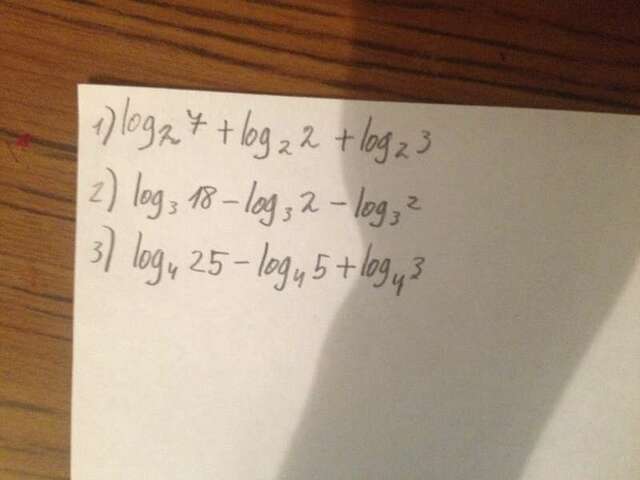 1) log₂7 + log₂2 + log₂3
2) log₃18 - log₃2 - log₃2
3) log₄25 - log₄5 + log₄3